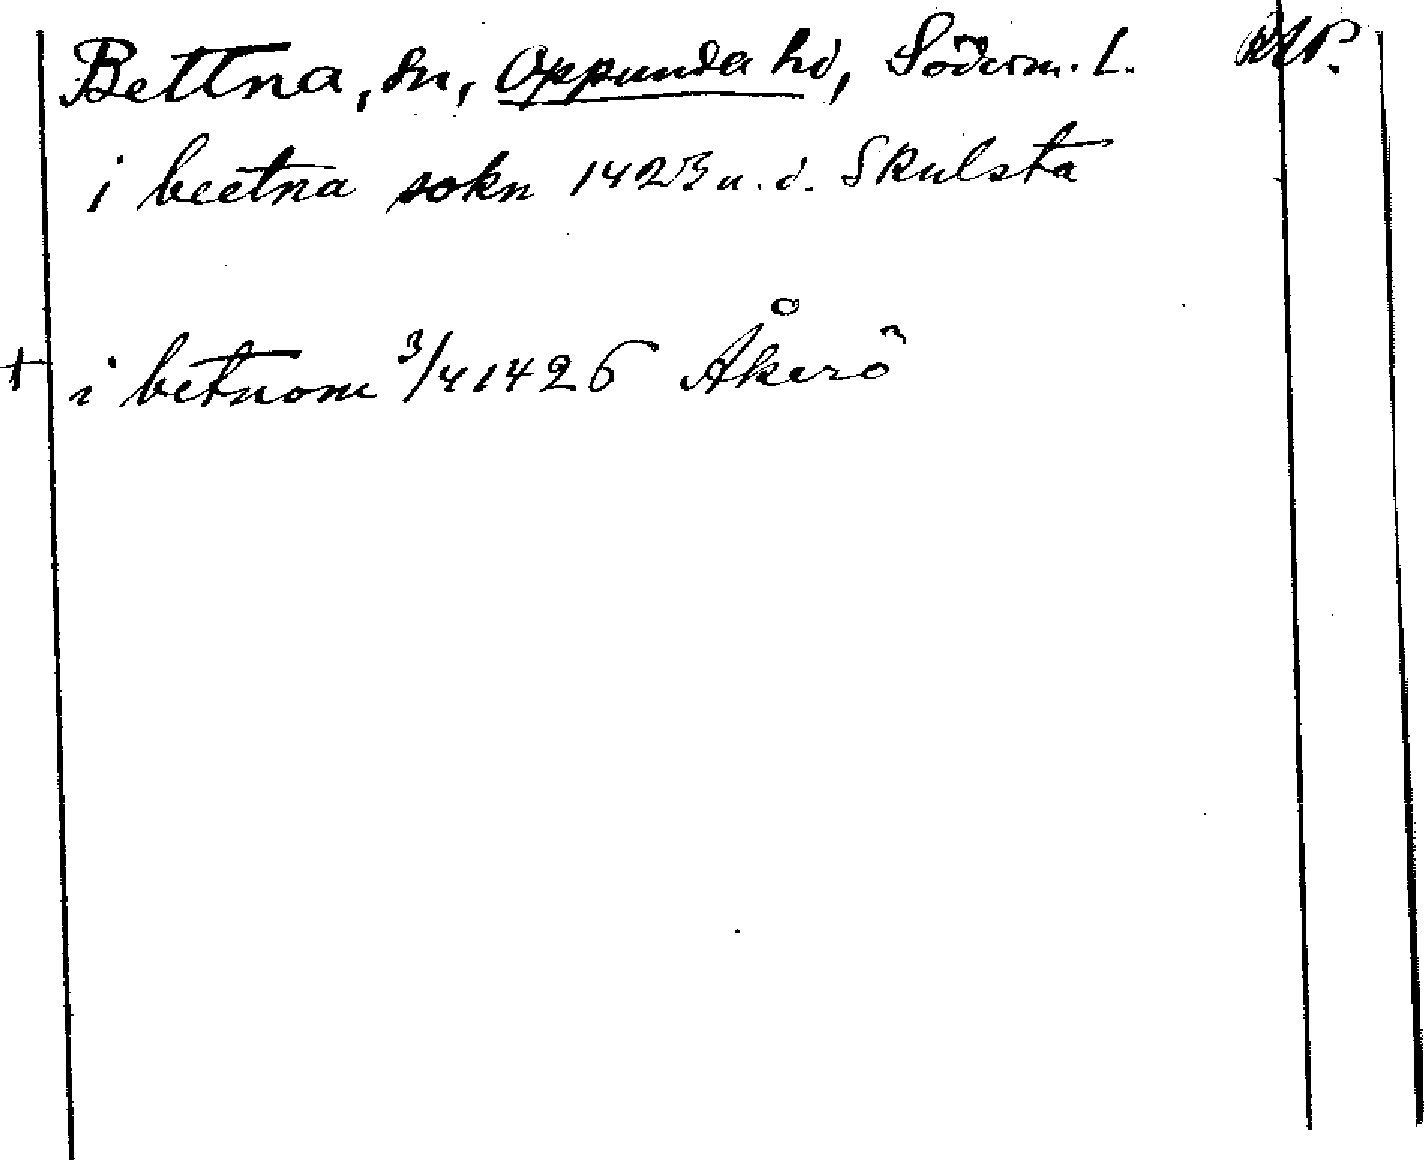 Bettna, sn, Oppunda hd, Söderm. L.
i beetna sokn 1423 u. d. Skulsta
+ i betnom 3/4 1426 Åkerö